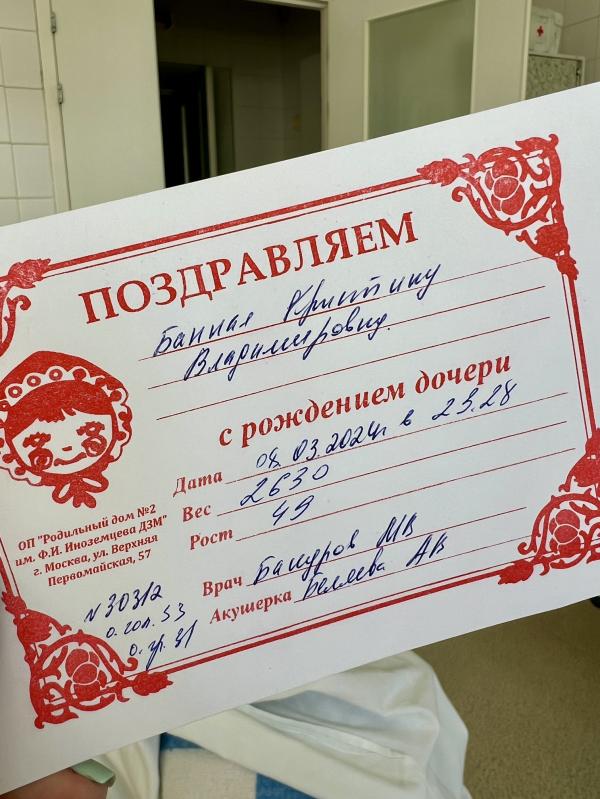 ПОЗДРАВЛЯЕМ
Банная Кристину
Владимировну.
с рождением дочери
Дата 08.03.2024г в 23.28
Вес 2630
Рост 49
ОП "Родильный дом №2
им. Ф.И. Иноземцева ДЗМ"
г. Москва, ул. Верхняя
Первомайская, 57
Врач МВ
Акушерка Беляева АВ
N 30312
о. гол. 33
о. гр. 31